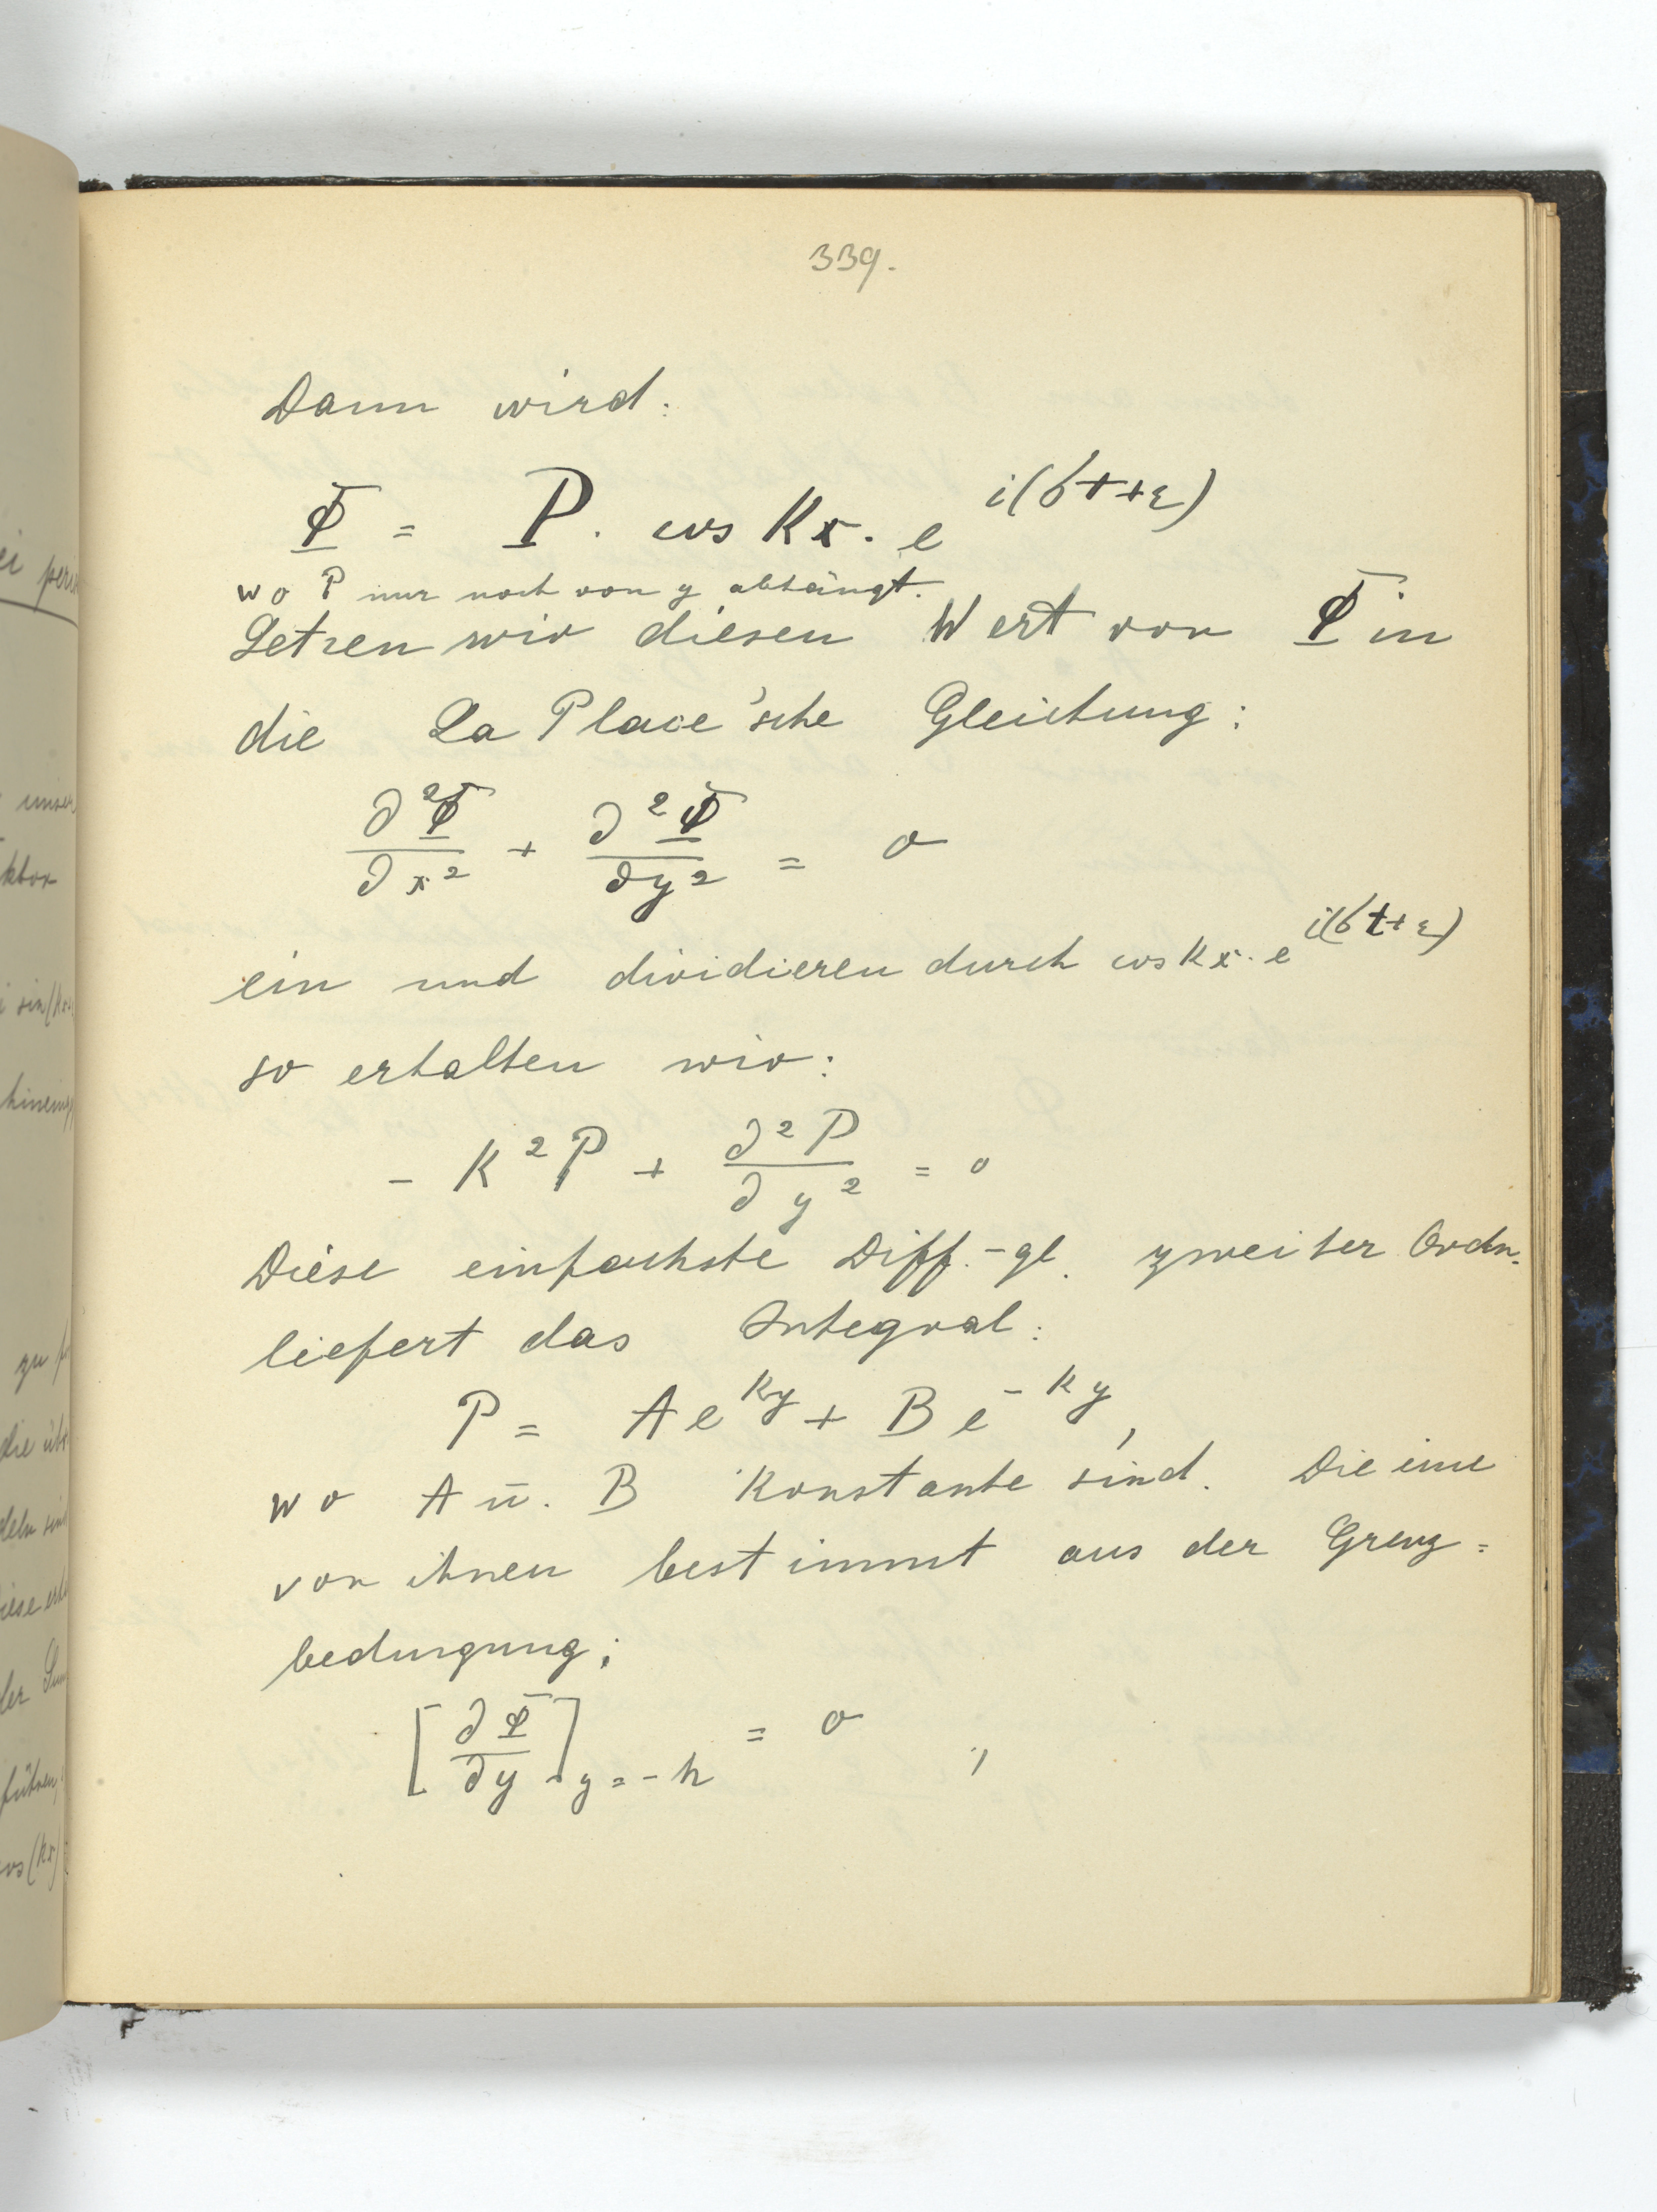 339.
Dann wird:
Φ = P. cos Kx. e^{i(σt+ε)}
wo P nur noch von y abhängt.
Setzen wir diesen Wert von Φ in
die La Place'sche Gleichung:
∂²Φ/∂x² + ∂²Φ/∂y² = 0
ein und dividieren durch cos Kx. e^{i(σt+ε)}
so erhalten wir:
- K²P + ∂²P/∂y² = 0
Diese einfachste Diff.-gl. zweiter Ordn.
liefert das Integral:
P = A e^{Ky} + B e^{-Ky},
wo A u. B Konstante sind. Die eine
von ihnen bestimmt aus der Grenz=
bedingung;
[∂Φ/∂y]_{y=-h} = 0 ;